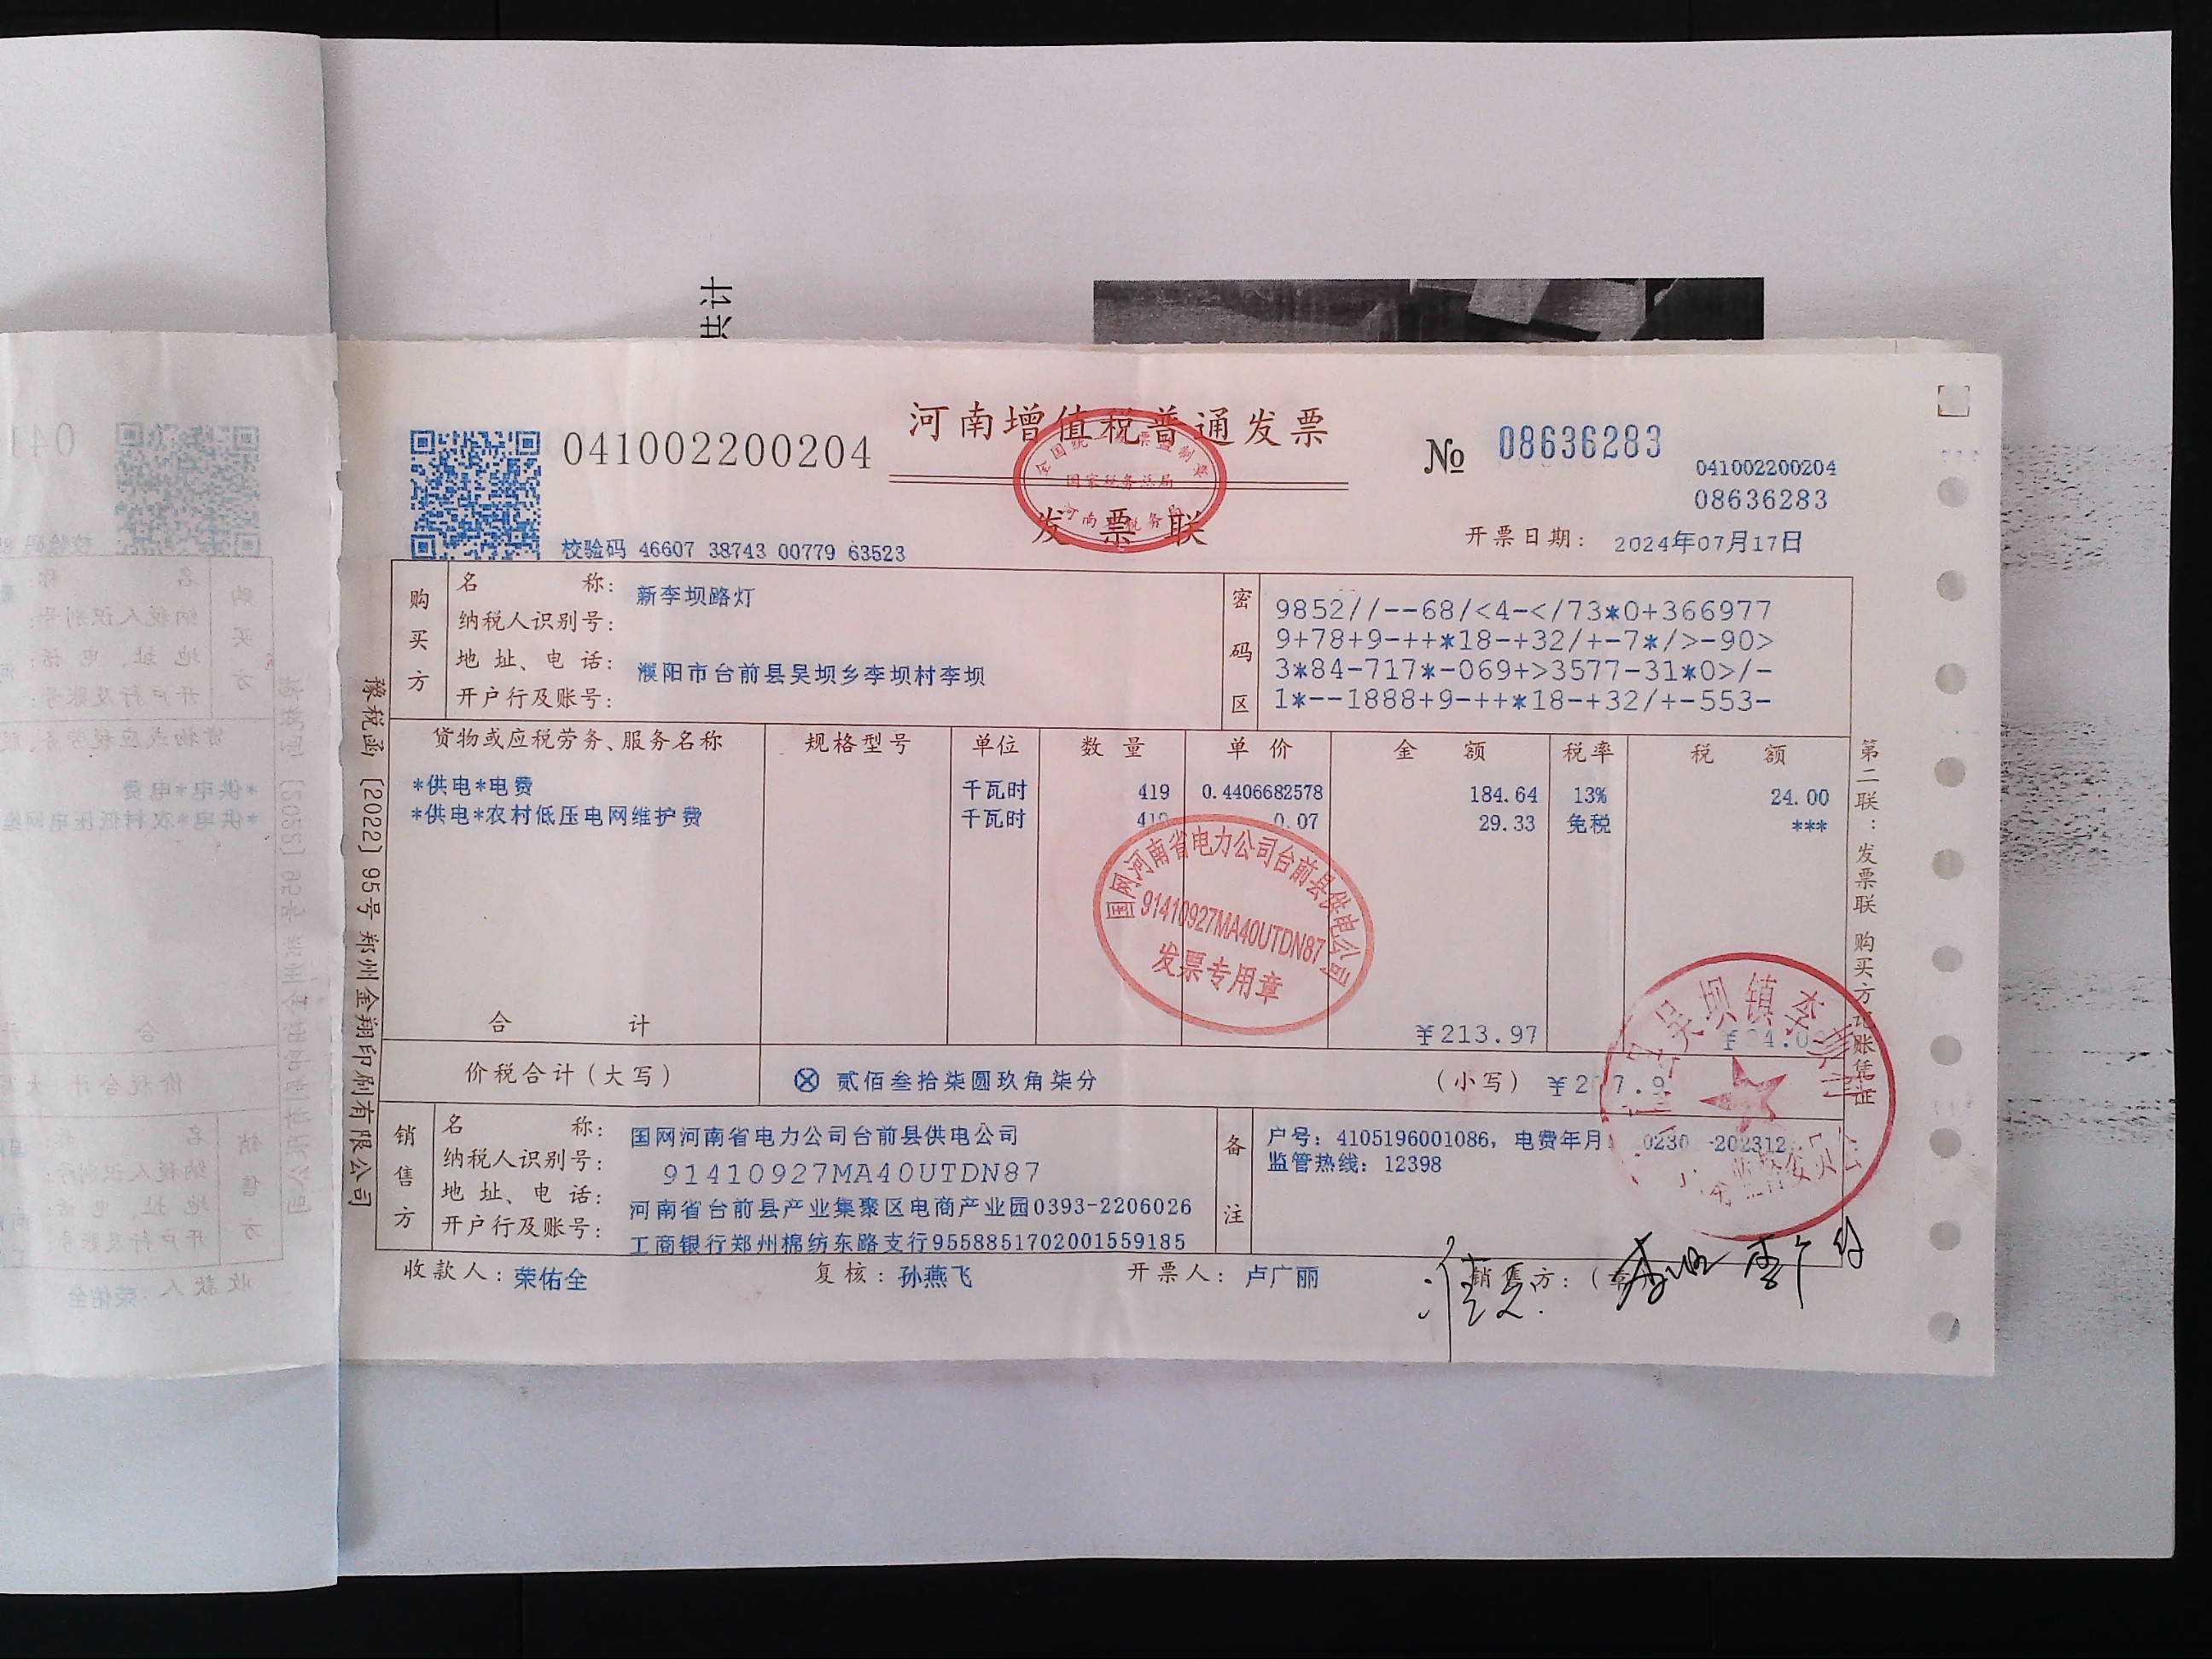 共计
河南增值税普通发票
041002200204
№ 08636283
041002200204
08636283
全国统一发票监制章
国家税务总局
河南省税务局
发票联
校验码 46607 38743 00779 63523
开票日期: 2024年07月17日
购买方
名 称: 新李坝路灯
纳税人识别号:
地 址、电 话: 濮阳市台前县吴坝乡李坝村李坝
开户行及账号:
密码区
9852//--68/<4-</73*0+366977
9+78+9-++*18-+32/+-7*/>-90>
3*84-717*-069+>3577-31*0>/-
1*--1888+9-++*18-+32/+-553-
货物或应税劳务、服务名称 规格型号 单位 数 量 单 价 金 额 税率 税 额
*供电*电费 千瓦时 419 0.4406682578 184.64 13% 24.00
*供电*农村低压电网维护费 千瓦时 419 0.07 29.33 免税 ***
国网河南省电力公司台前县供电公司
91410927MA40UTDN87
发票专用章
合 计 ¥213.97
价税合计(大写) ⊗ 贰佰叁拾柒圆玖角柒分 (小写)
销售方
名 称: 国网河南省电力公司台前县供电公司
纳税人识别号: 91410927MA40UTDN87
地 址、电 话: 河南省台前县产业集聚区电商产业园0393-2206026
开户行及账号: 工商银行郑州棉纺东路支行9558851702001559185
备注
户号: 4105196001086, 电费年月: -202312,
监管热线: 12398
吴坝镇李
收款人: 荣佑全 复核: 孙燕飞 开票人: 卢广丽 销售方:(
豫税函〔2022〕95号 郑州金翔印刷有限公司
第二联:发票联 购买方记账凭证